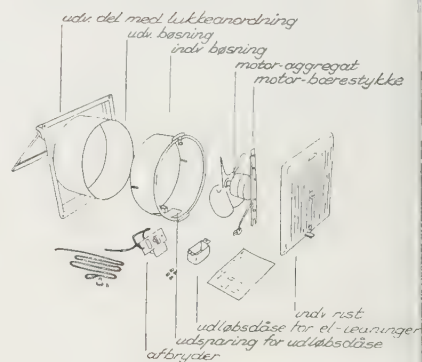 udv. del med lukkeanordning
udv. bøsning
indv. bøsning
motor-aggregat
motor-bærestykke
indv. rist
udløbsdåse for el-ledninger
udsparing for udløbsdåse
afbryder